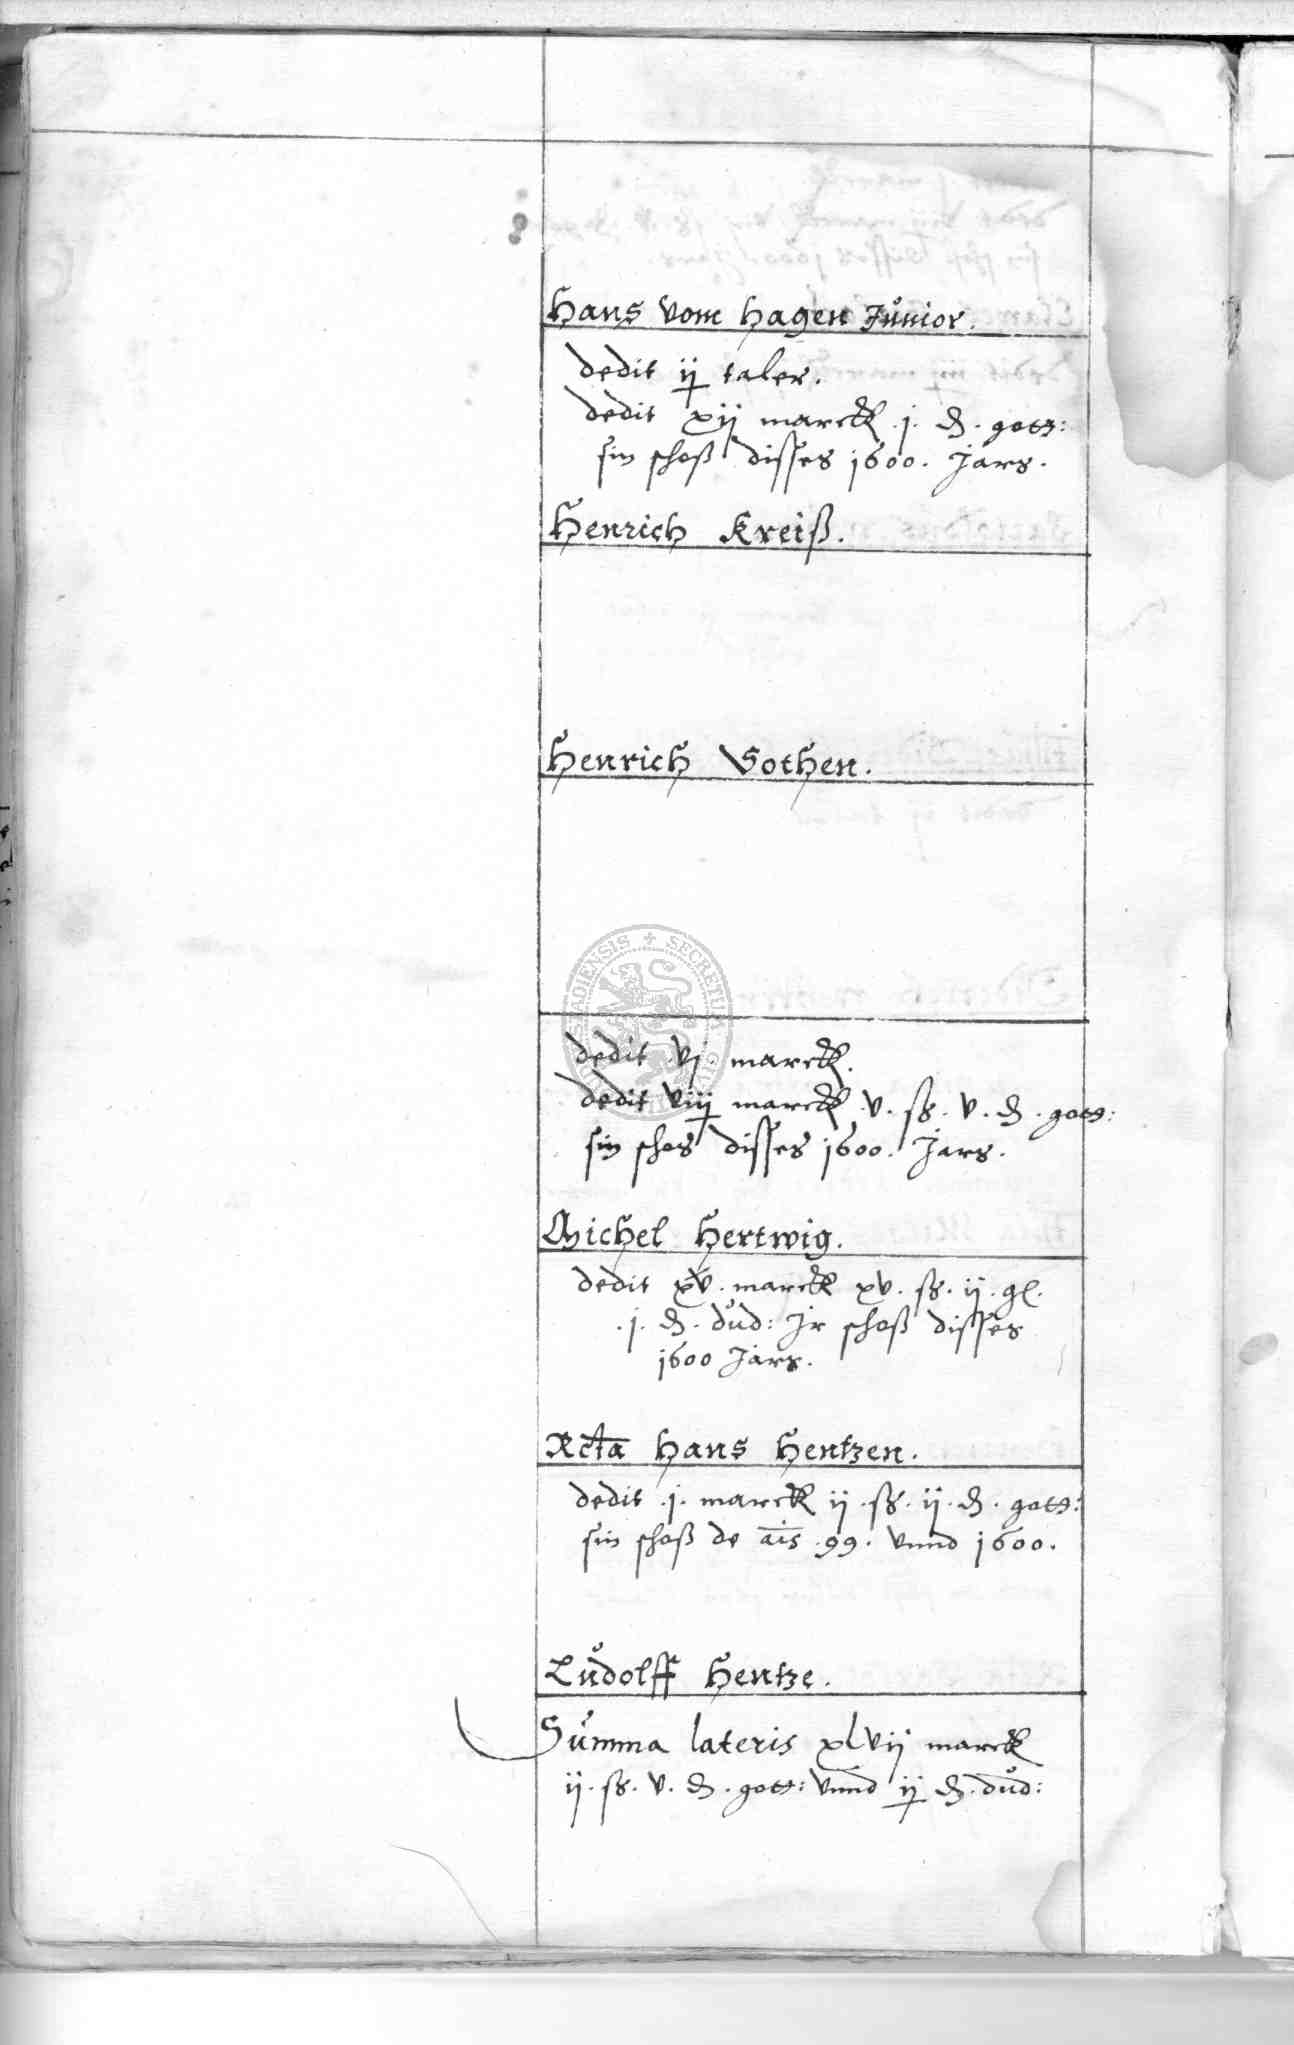 Hans vom Hagen Jůnior.
dedit ij taler.
dedit xij marck .j. ₰. gott:
sin schoß disses 1600. Jars.
Henrich Kreiß.
Henrich Vothen.
dedit vj marck.
dedit viij marck .v. ß. v. ₰. gott:
sin schos disses 1600. Jars.
Michel Hertwig.
dedit xv. marck xv. ß. ij. gl.
.j. ₰. důd: Jr schoß disses
1600 Jars.
Rcta Hans Hentzen.
dedit .j. marck ij .ß. ij. ₰. gott:
sin schoß de ais .99. vnnd 1600.
Lůdolff Hentze.
Sůmma lateris xlvij marck
ij. ß. v. ₰. gott: vnnd ij ₰. důd:
SECRETUM